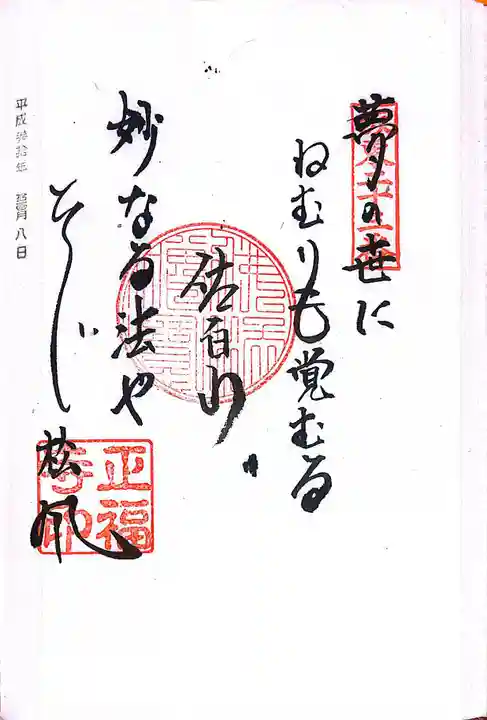 夢の世に
ねむりも覚むる
佐白山
妙なる法や
ひゞく松風
正福
寺印
平成参拾年
月八日